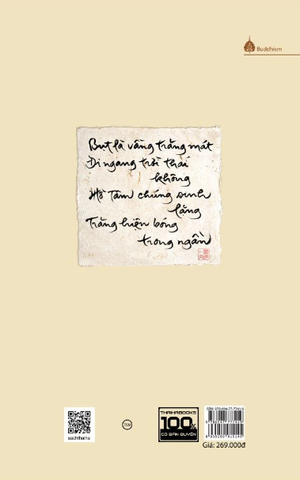 Buddhism
Bụt là vầng trăng mát
Đi ngang trời thái
không
Hồ Tâm chúng sinh
lặng
Trăng hiện bóng
trong ngần
THAIHABOOKS
100%
CÓ BẢN QUYỀN
Giá: 269.000đ